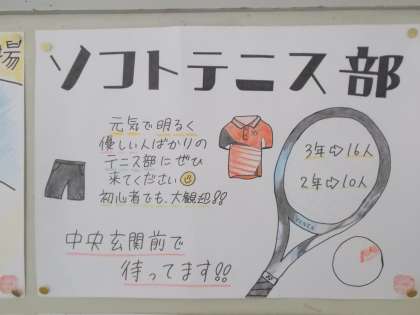 場
ソフトテニス部
元気で明るく
優しい人ばかりの
テニス部にぜひ
来てください
初心者でも、大歓迎!!
3年⇨16人
2年⇨10人
中央玄関前で
待ってます!!